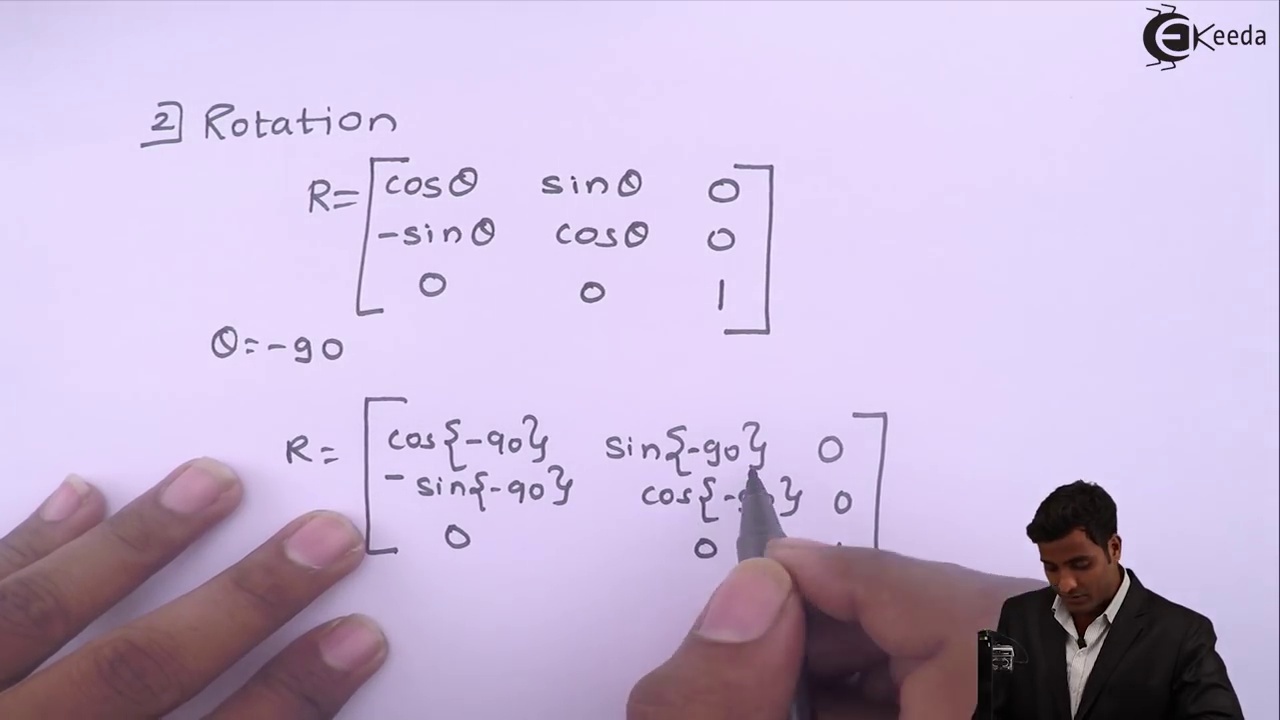 EKeeda
2] Rotation
R= [ cosθ sinθ 0
-sinθ cosθ 0
0 0 1 ]
θ=-90
R= [ cos{-90} sin{-90} 0
-sin{-90} cos{-90} 0
0 0